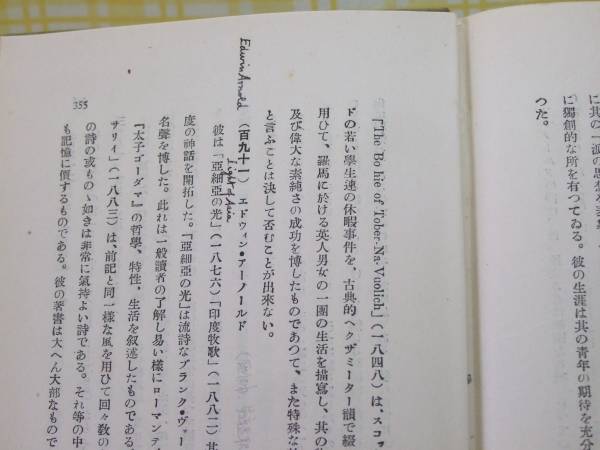 に其の一派の思想を
に獨創的な所を有つてゐる。彼の生涯は其の青年の期待を充分
つた。
『The Bo hie of Tober-Na-Vuolich』(一八四八)は、スコッ
ドの若い學生連の休暇事件を、古典的ヘクザミーター韻で綴
用ひて、羅馬に於ける英人男女の一團の生活を描寫し、其の
及び偉大な素純さの成功を博したものであつて、また特殊な
と言ふことは決して否むことが出來ない。
Edwin Arnold
(百九十一) エドウィン・アーノルド
Light of Asia
彼は「亞細亞の光」(一八七六)「印度牧歌」(一八八二)其
度の神話を開拓した。『亞細亞の光』は流詩なブランク・ヴァー
名聲を博した。此れは一般讀者の了解し易い樣にローマンテ
『太子ゴーダマ』の哲學、特性、生活を叙述したものである
サリイ」(一八八三)は、前記と同一樣な風を用ひて回々敎の
の詩の或ものゝ如きは非常に氣持よい詩である。それ等の中
も記憶に價するものである。彼の著書は大へん大部なもので
355